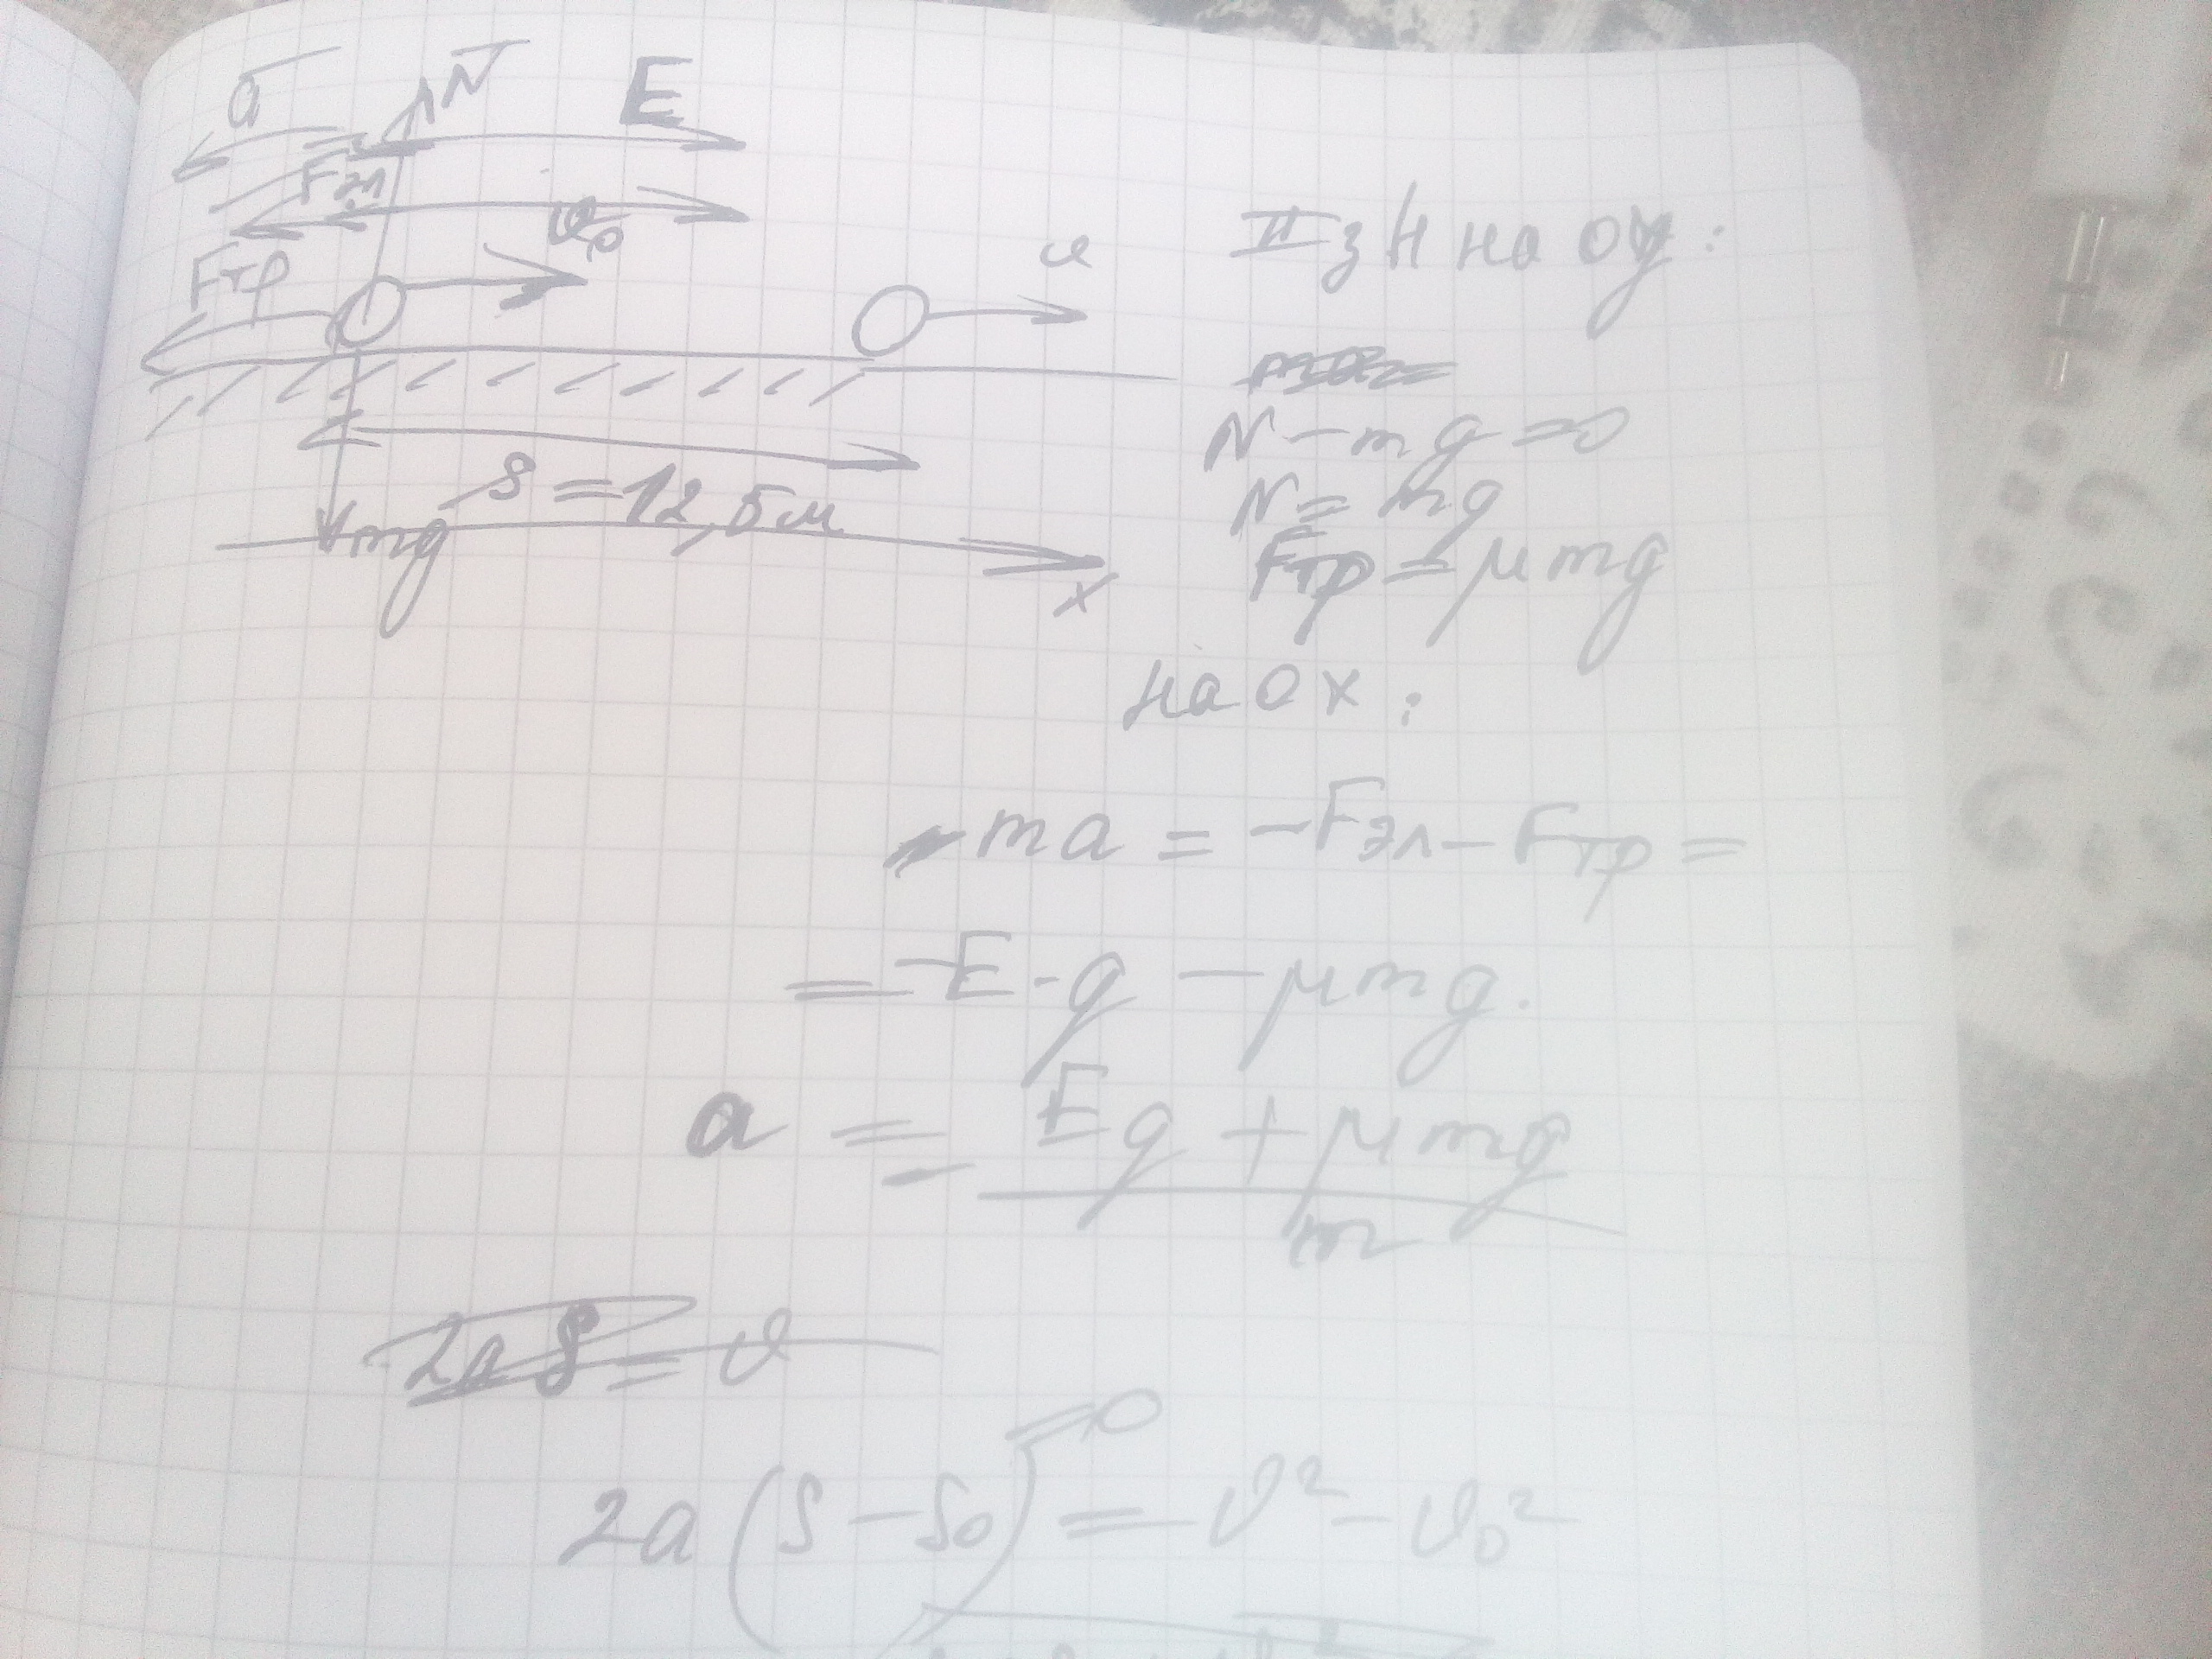 a N E
Fэл
v₀
Fтр
v
S = 12,5м
mg
x
II з Н на оу:
N - mg = 0
N = mg
Fтр = μmg
на Ox:
ma = -Fэл - Fтр =
= -E·q - μmg.
a = - (Eq + μmg) / m
2aS = v
= 0
2a(S - S₀) = v² - v₀²